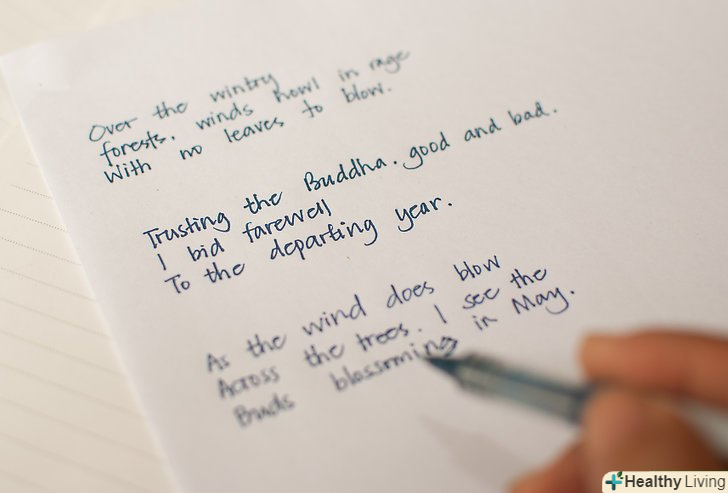 Over the wintry
forests. winds howl in rage
With no leaves to blow.
Trusting the Buddha. good and bad.
I bid farewell
To the departing year.
As the wind does blow
Across the trees. I see the
Buds blossoming in May.
Healthy Living